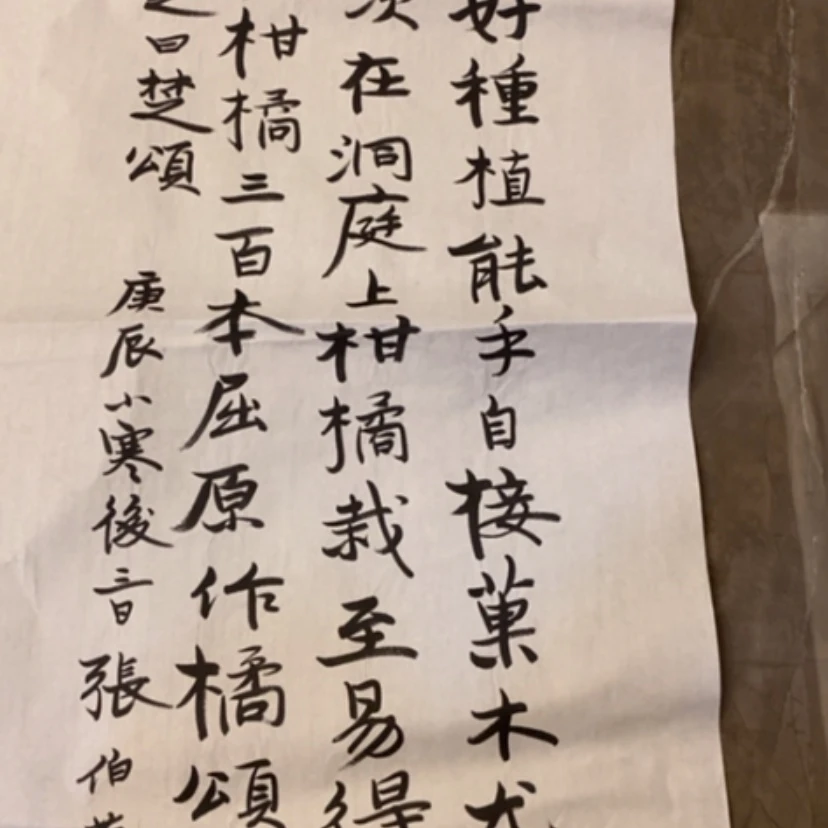 好種植能手自接菓木尤
在洞庭上柑橘栽至易得
柑橘三百本屈原作橘頌
曰楚頌
庚辰小寒後三日張伯